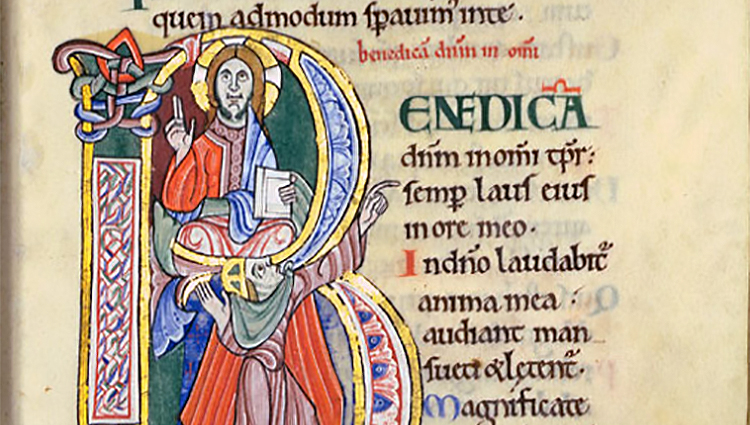 quem admodum sꝑauim᾽ inte .
benedicā dn̄m in om̄i
BENEDICĀ
dn̄m inom̄i tp̄r:
semꝑ laus eius
in ore meo.
In dn̄o laudabit᷑
anima mea :
audiant man
sueti & lętent᷑.
Magnificate